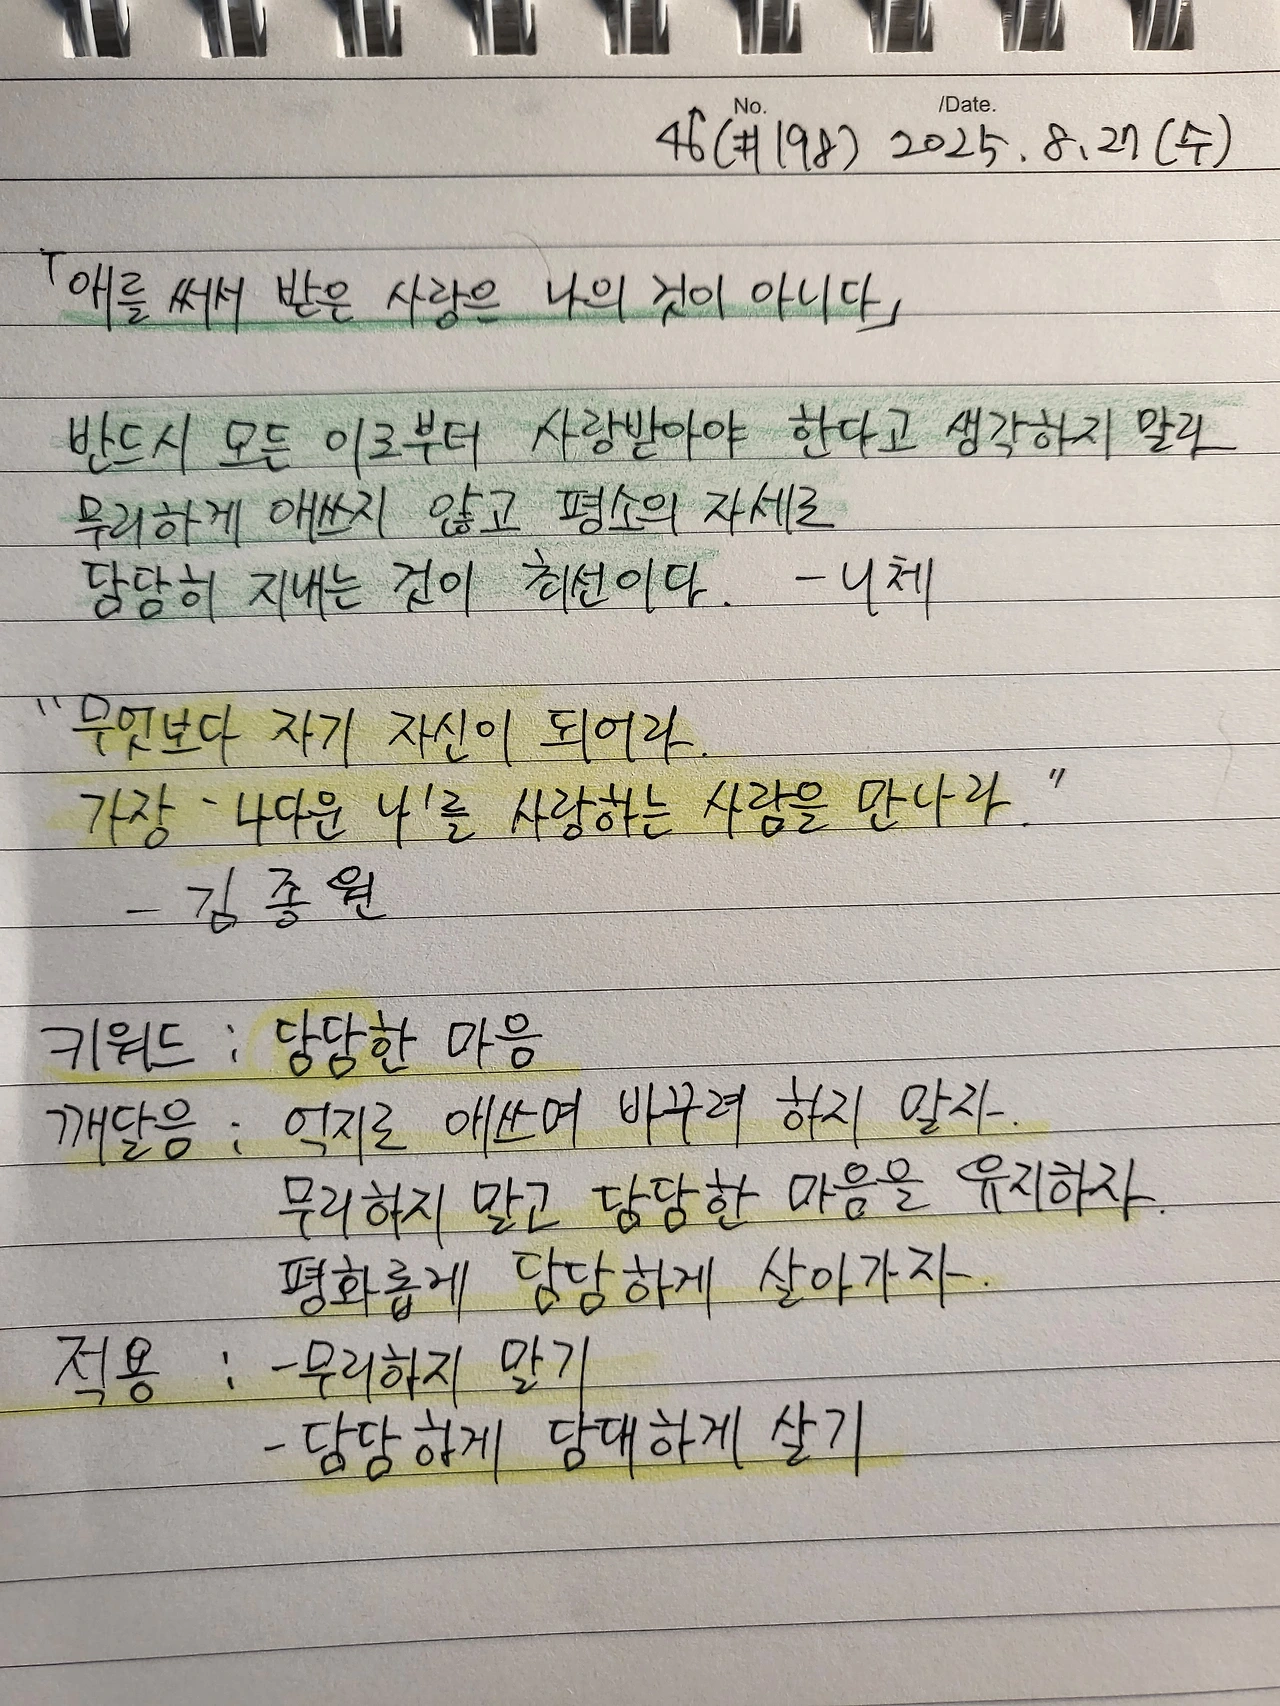 No. /Date.
46(#198) 2025. 8. 27 (수)
「애를 써서 받은 사랑은 나의 것이 아니다」
반드시 모든 이로부터 사랑받아야 한다고 생각하지 말라
무리하게 애쓰지 않고 평소의 자세로
담담히 지내는 것이 최선이다. - 니체
"무엇보다 자기 자신이 되어라.
가장 '나다운 나'를 사랑하는 사람을 만나라."
- 김종원
키워드 : 담담한 마음
깨달음 : 억지로 애쓰며 바꾸려 하지 말자.
무리하지 말고 담담한 마음을 유지하자.
평화롭게 담담하게 살아가자.
적용 : - 무리하지 말기
- 담담하게 담대하게 살기